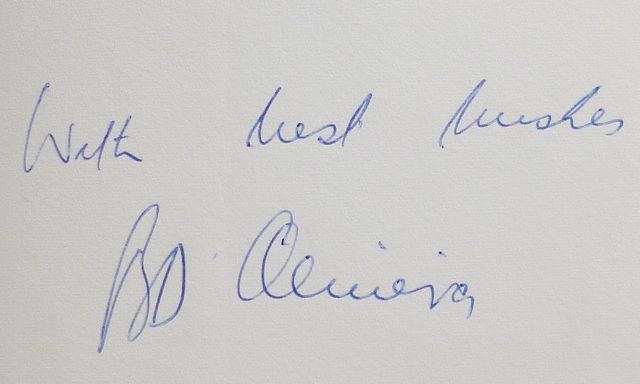 With best wishes
BD Oliveira